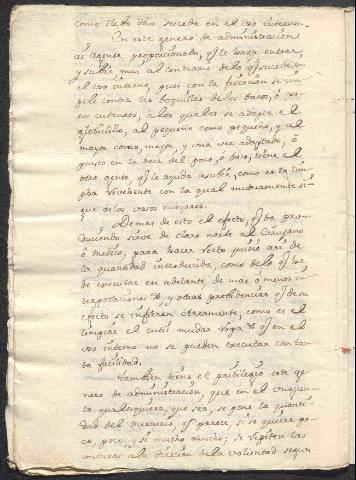 como llebo dho sucede en el uso interno.
En este genero de administración
ai agente proporcionado, q͂ le haga entrar,
y subir, mui al contrario de lo q͂ sucede en
el uso interno, pues con la friccion se im
pele contra las boquillas de los basos, ó po-
ros cutaneos, a los quales se adapta el
globulillo, al pequeño como pequeño, y al
mayor como mayor, y una vez adaptado, ó
puesto en la boca del poro, ó baso, tiene el
otro agente, q͂ le ayuda a subir, como es la lim
pha revehente con la qual mutuamente si-
gue a los vasos mayores.
Demas de esto el efecto, q͂ ba pro-
duciendo sirve de claro norte al Cirujano
ó medico, para hacer recto juicio asi de
la quantidad introducida, como de lo q͂ ha
de executar en adelante, de mas ó menos in
terpolaciones &, y otras probidencias q͂ de su
efecto se infieren claramente, como es el
limpiar el cutis mudar ropa &, q͂ en el
uso interno no se pueden executar con tan
ta facilidad.
Tambien tiene el privilegio este ge-
nero de administración, que en el unguen-
to qualesquiera, que sea, se pone la quanti-
dad del mercurio, q͂ parece, si se quiere po-
co, poco, y si mucho mucho; se repiten las
unturas a la direcion de la voluntad segun